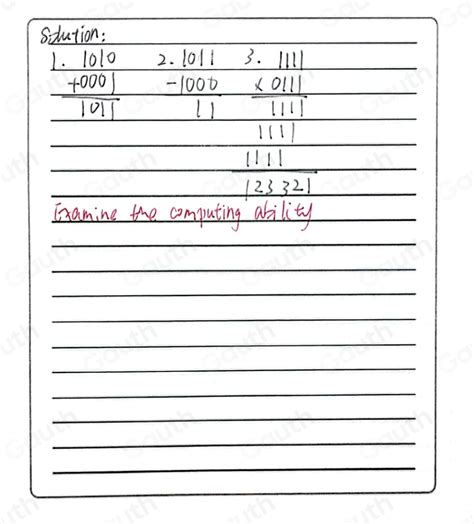 Solution:
1. 1010 2. 1011 3. 1111
+0001 -1000 x 0111
1011 11 1111
1111
1111
123321
Examine the computing ability